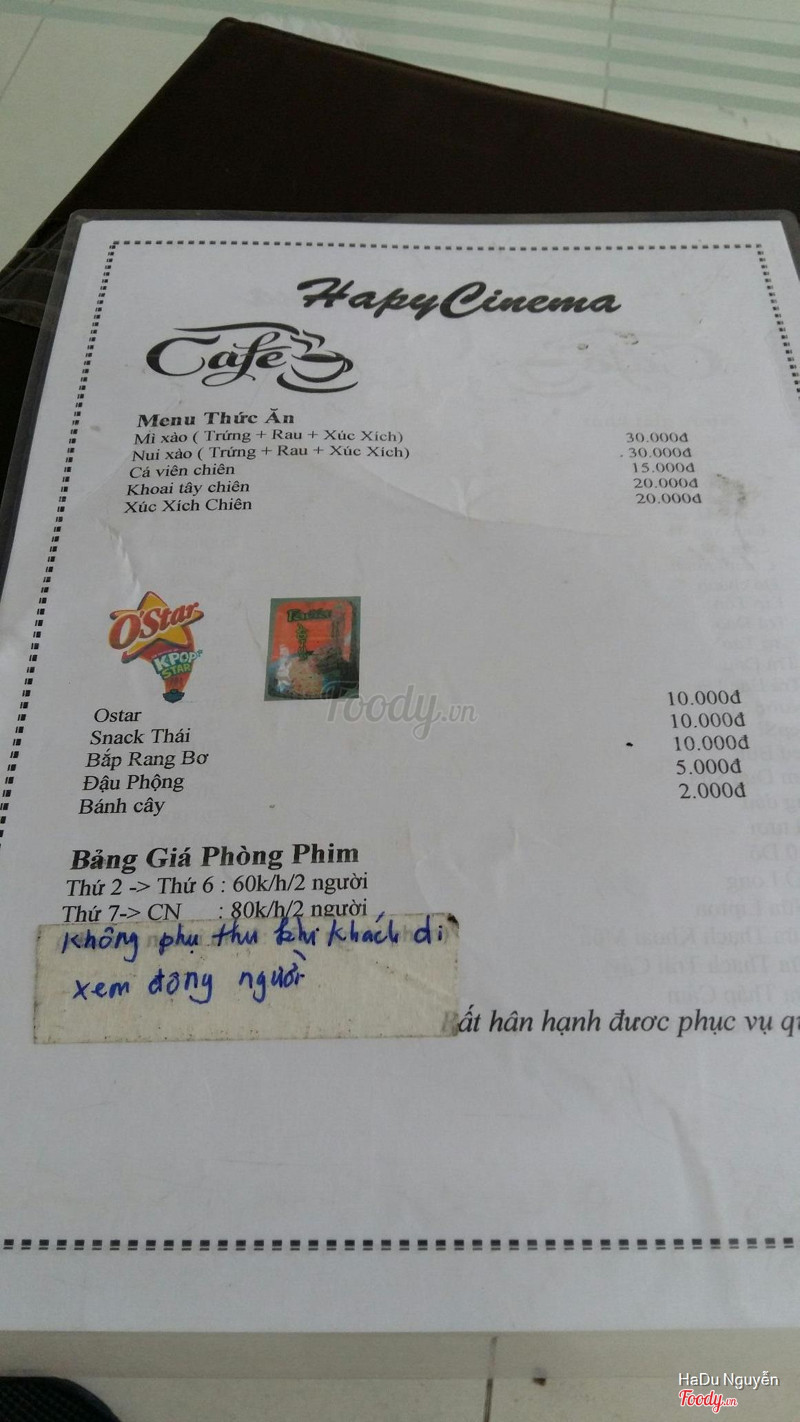 HapyCinema
Café
Menu Thức Ăn
Mì xào ( Trứng + Rau + Xúc Xích) 30.000đ
Nui xào ( Trứng + Rau + Xúc Xích) 30.000đ
Cá viên chiên 15.000đ
Khoai tây chiên 20.000đ
Xúc Xích Chiên 20.000đ
O'Star
KPOP
STAR
Foody.vn
Ostar 10.000đ
Snack Thái 10.000đ
Bắp Rang Bơ 10.000đ
Đậu Phộng 5.000đ
Bánh cây 2.000đ
Bảng Giá Phòng Phim
Thứ 2 -> Thứ 6 : 60k/h/2 người
Thứ 7-> CN : 80k/h/2 người
không phụ thu khi khách đi
xem đông người
Rất hân hạnh đươc phục vụ
HaDu Nguyễn
Foody.vn